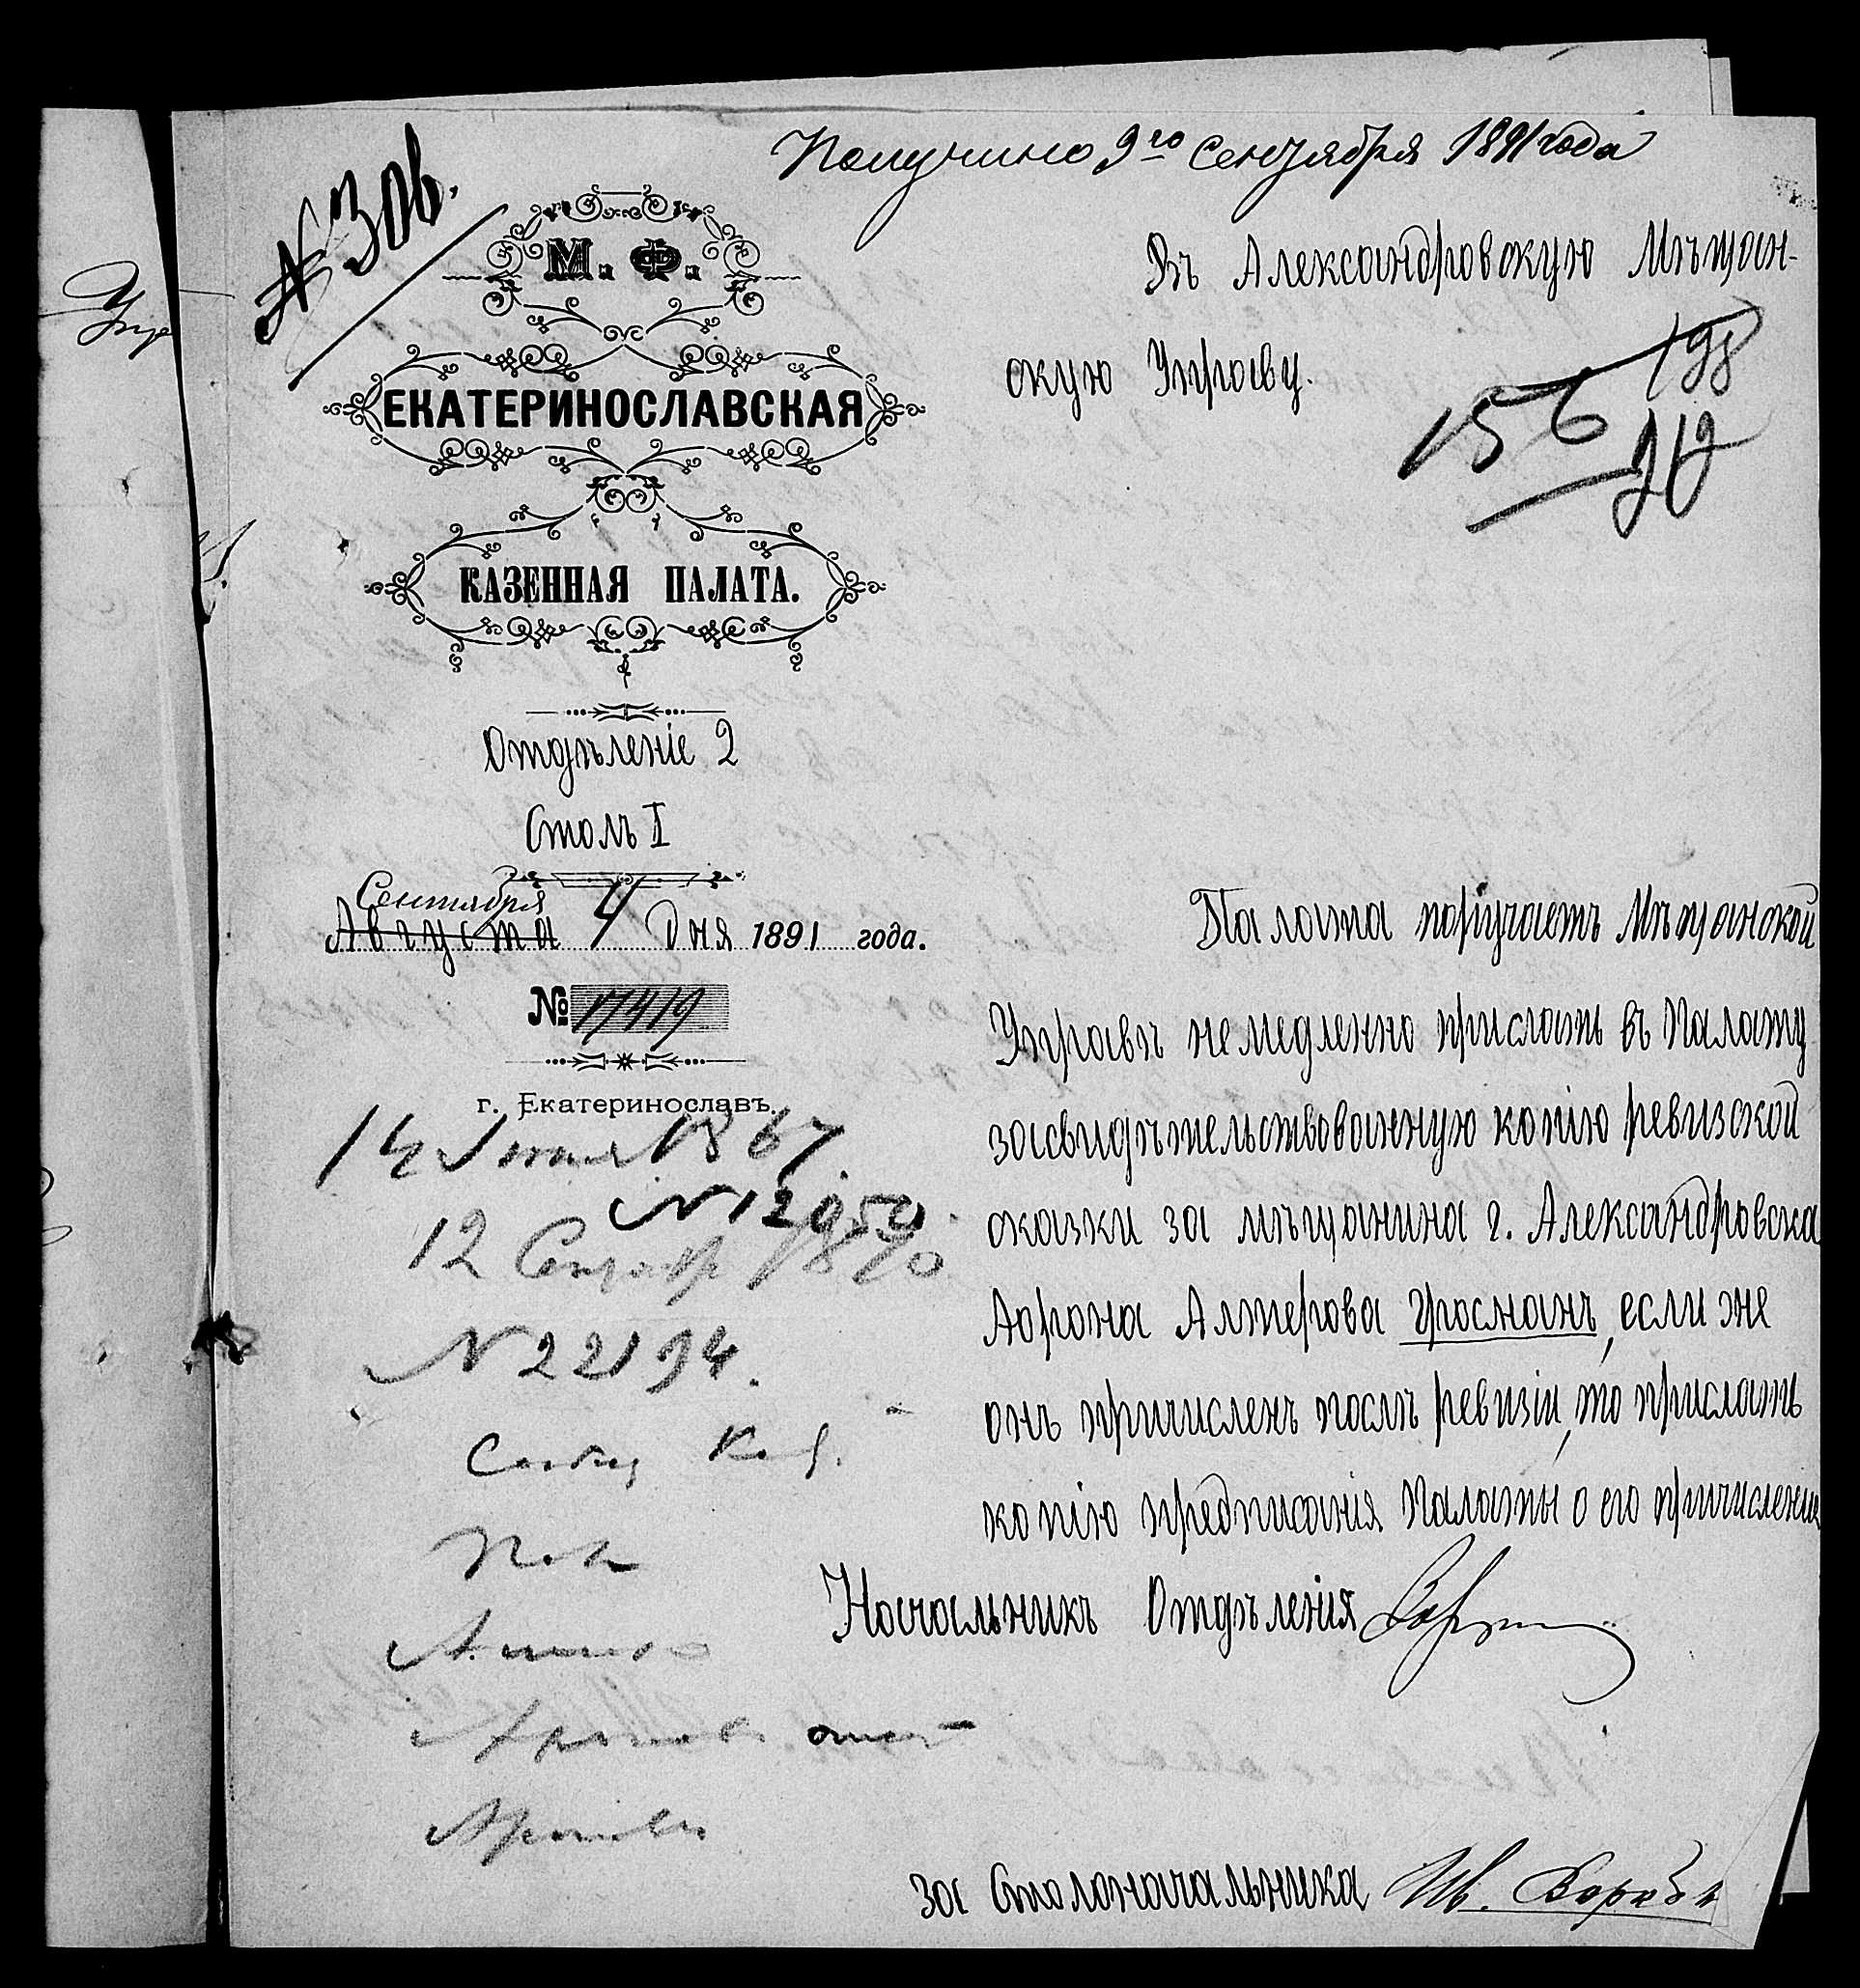 Получено 9го Сентября 1891 года
№ 306.
М. Ф.
ЕКАТЕРИНОСЛАВСКАЯ
КАЗЕННАЯ ПАЛАТА.
Отдѣленіе 2
Столъ I
Сентября
Августа 4 дня 1891 года.
№ 17419
г. Екатеринославъ.
Въ Александровскую Мѣщан-
скую Управу.
198
156
212
Палата поручаетъ Мѣщанской
Управѣ немедленно прислать въ Палату
засвидѣтельствованную копію ревизской
сказки за мѣщанина г. Александровска
Аорона Алтерова Гросманъ, если же
онъ причисленъ послѣ ревизіи, то прислать
копію предписанія Палаты о его причисленіи
Начальникъ Отдѣленія
за Столоначальника Ив.
14 1867.
№ 12950.
12 Сентября 1870
№ 22194.